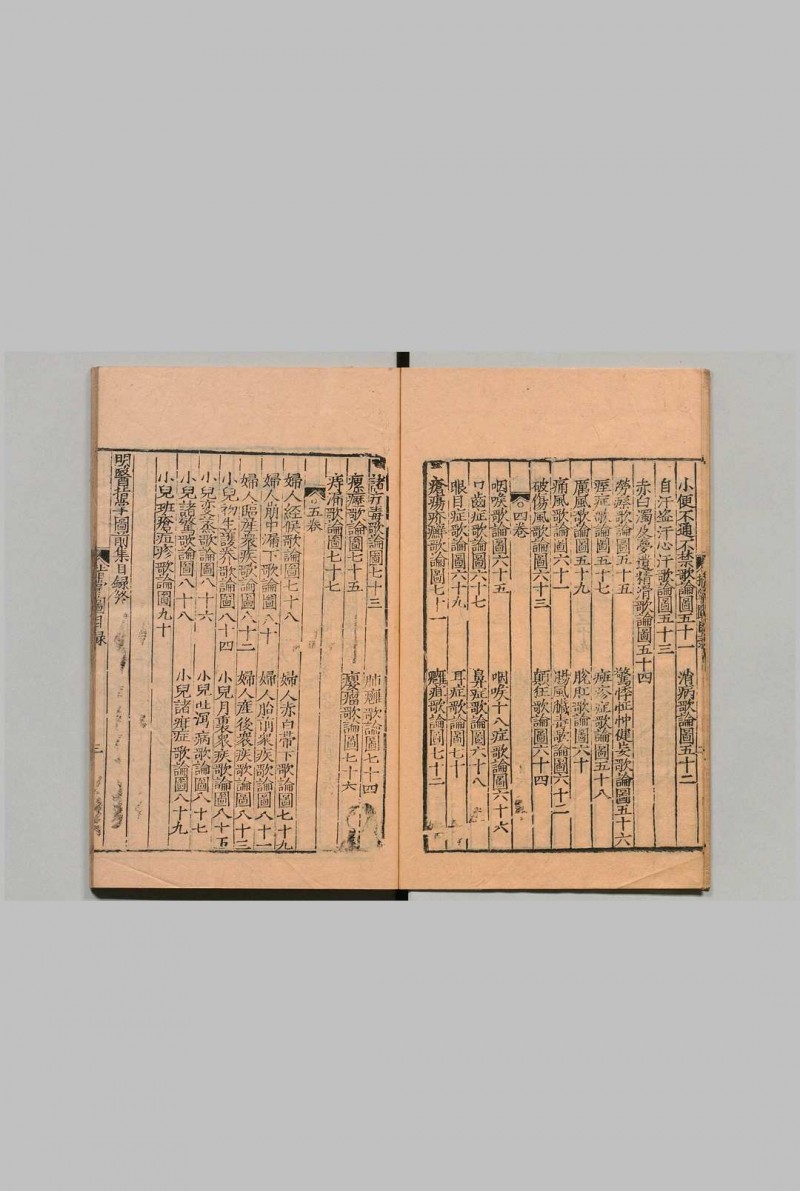 小便不通不禁歌論圖五十一　消病歌論圖五十二
自汗盗汗心汗歌論圖五十三
赤白濁及夢遺精滑歌論圖五十四
勞瘵歌論圖五十五　驚悸怔忡健妄歌論圖五十六
痓症歌論圖五十七　痺症歌論圖五十八
厲風歌論圖五十九　脫肛歌論圖六十
痛風歌論圖六十一　腸風臟毒歌論圖六十二
破傷風歌論圖六十三　顛狂歌論圖六十四
四卷
咽喉歌論圖六十五　咽喉十八症歌論圖六十六
口齒症歌論圖六十七　鼻症歌論圖六十八
眼目症歌論圖六十九　耳症歌論圖七十
瘡瘍疥癬歌論圖七十一　癰疽歌論圖七十二
諸疔毒歌論圖七十三　肺癰歌論圖七十四
瘰癧歌論圖七十五　癭瘤歌論圖七十六
痔漏歌論圖七十七
五卷
婦人經候歌論圖七十八　婦人赤白帶下歌論圖七十九
婦人崩中漏下歌論圖八十　婦人胎前衆疾歌論圖八十一
婦人臨産衆疾歌論圖八十二　婦人產後衆疾歌論圖八十三
小兒初生護养歌論圖八十四　小兒月裏衆疾歌論圖八十五
小兒变蒸歌論圖八十六　小兒吐瀉病歌論圖八十七
小兒諸驚歌論圖八十八　小兒諸疳症歌論圖八十九
小兒班瘡痘疹歌論圖九十
明醫指掌圖前集目録終
指掌圖目録
三